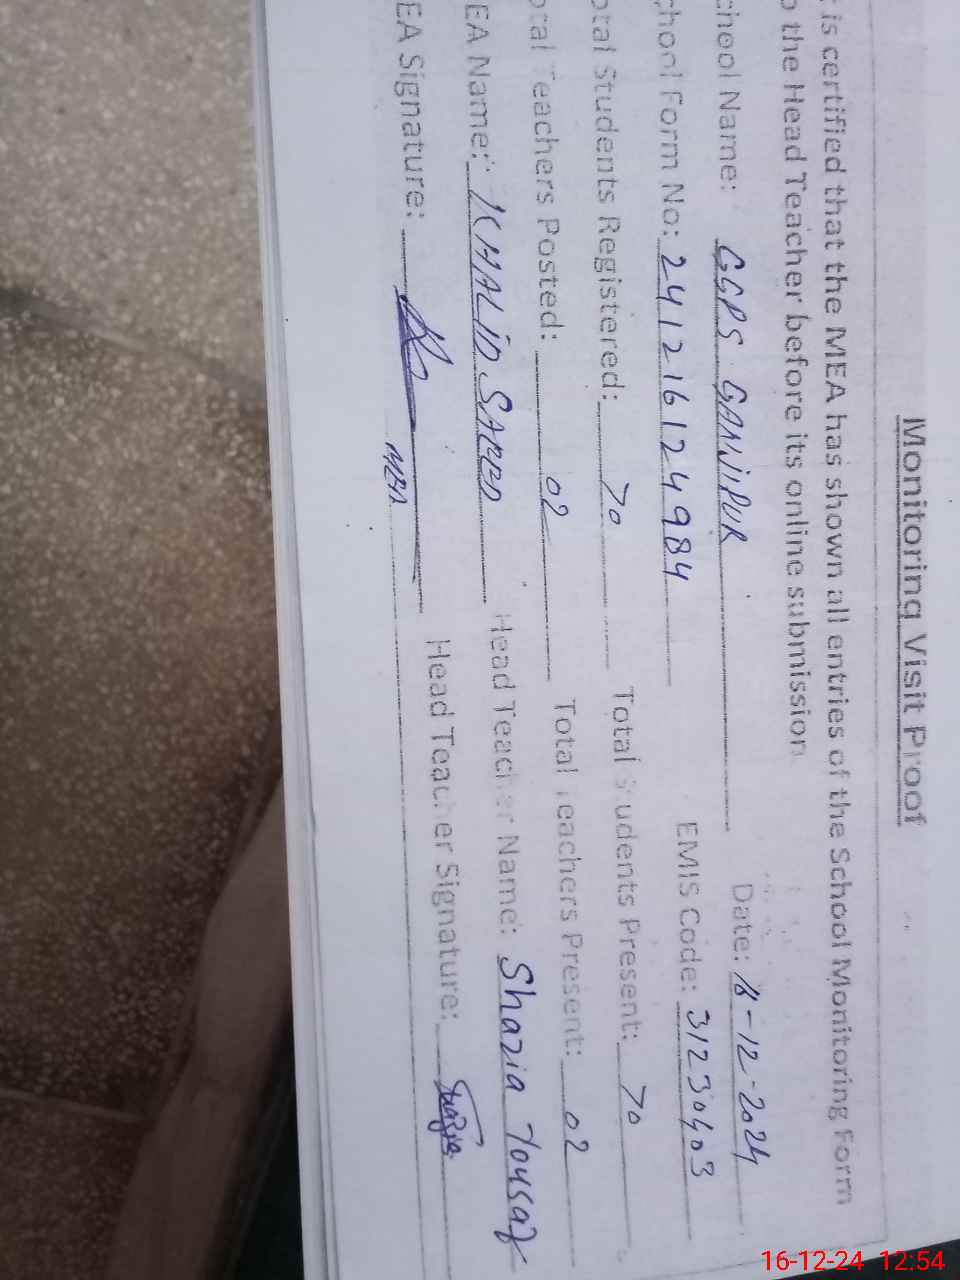 Monitoring Visit Proof
t is certified that the MEA has shown all entries of the School Monitoring Form
o the Head Teacher before its online submission.
chool Name: GGPS GANJIPUR Date: 16-12-2024
chool Form No: 241216124984 EMIS Code: 31230403
otal Students Registered: 70 Total Students Present: 70
otal Teachers Posted: 02 Total Teachers Present: 02
EA Name: KHALID SAEED Head Teacher Name: Shazia Yousaf
EA Signature: Head Teacher Signature: Shazia
MEA
16-12-24 12:54